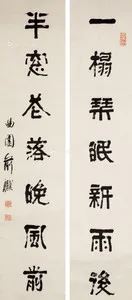 一榻琴眠新雨後
半窻花落晚風前
曲園俞樾